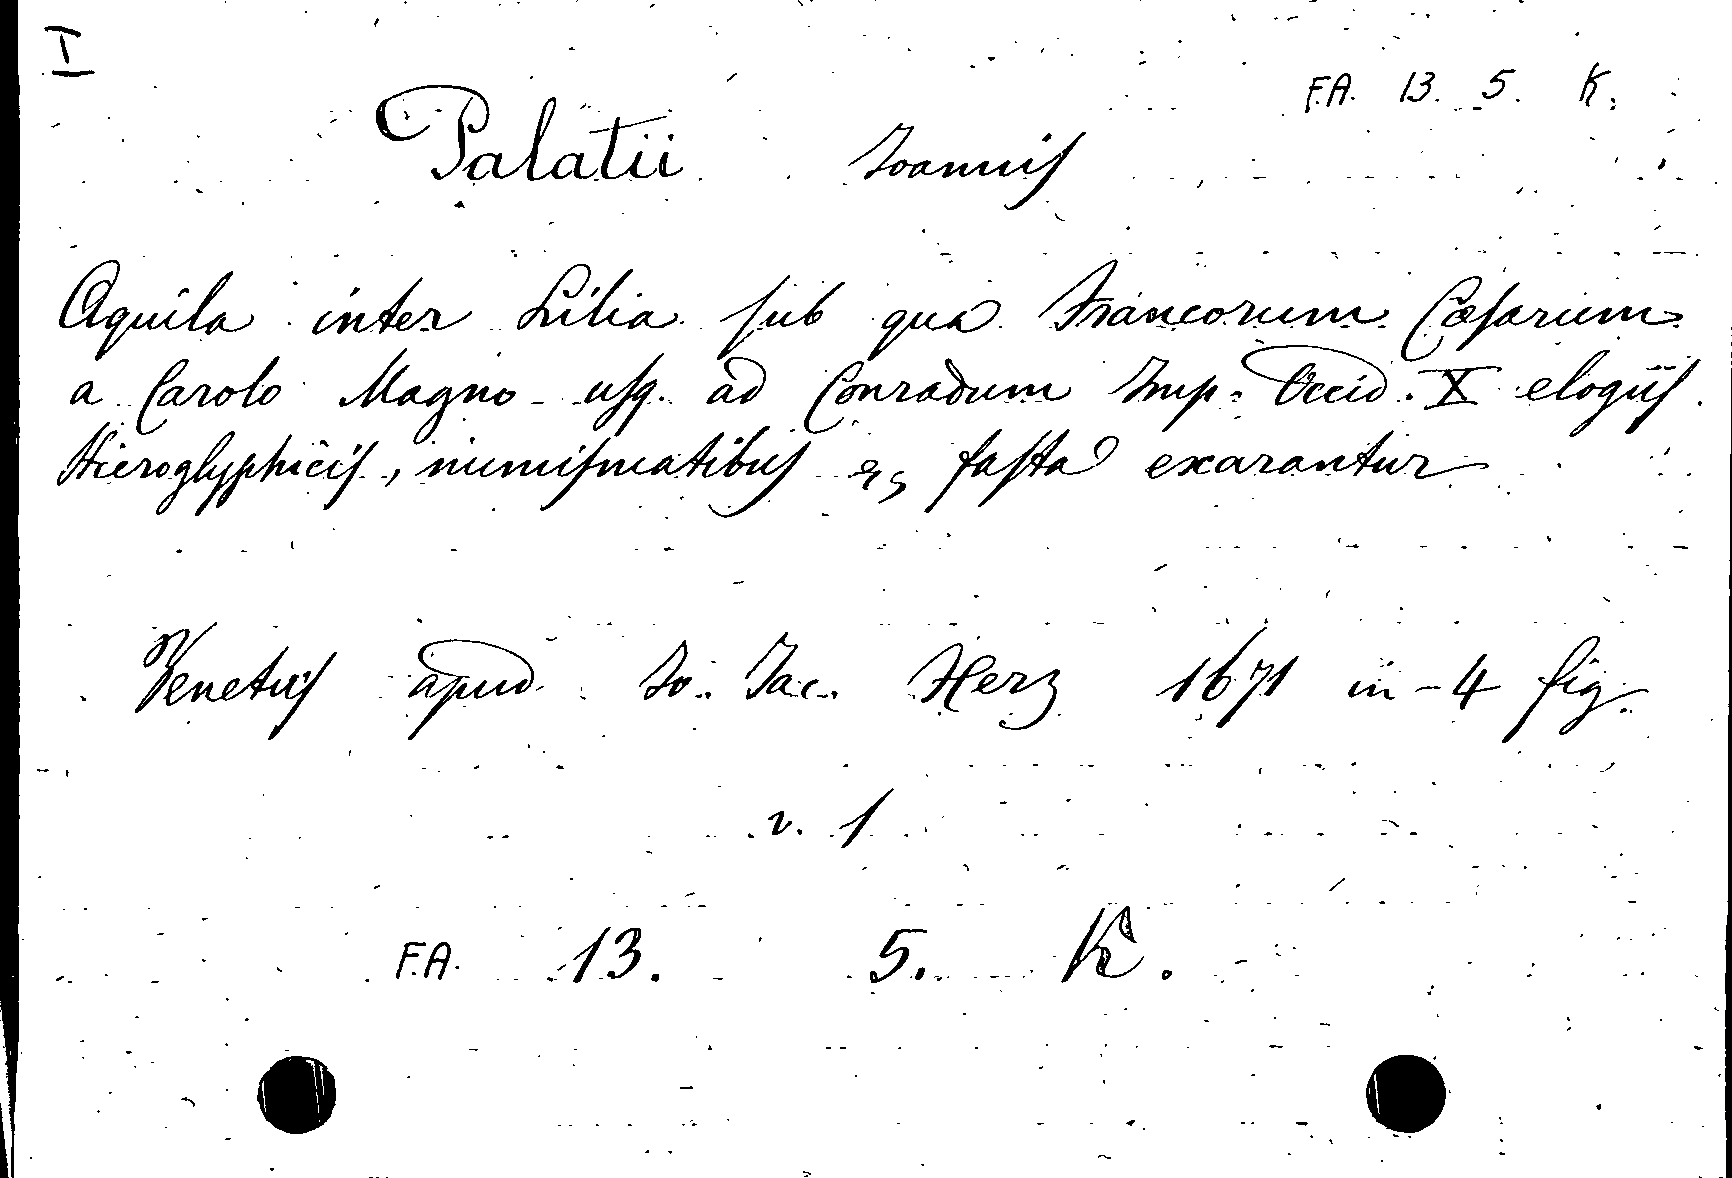 I
F.A. 13. 5. K.
Palatii Joannis
Aquila inter Lilia sub qua Francorum Cæsarum
a Carolo Magno usq. ad Conradum Imp. Occid. X elogiis
Hieroglyphicis, numismatibus &, fasta exarantur
Venetiis apud Jo. Jac. Herz 1671 in-4 fig.
v. 1
F.A. 13. 5. K.